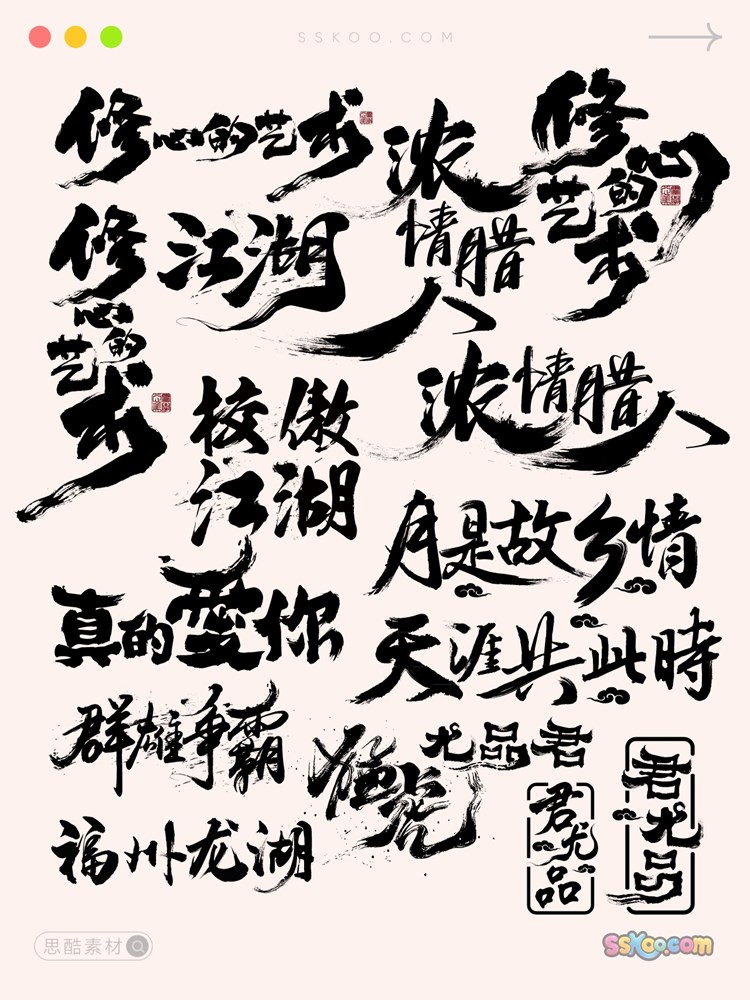 SSKOO.COM
修心的艺术
浓
情腊
人
修心
的
艺术
修
心的
艺
术
江湖
浓情腊人
校傲
江湖
月是故乡情
天涯共此時
真的愛你
群雄争霸
猛虎
尤品君
君尤品
君尤品
福州龙湖
思酷素材
sskoo.com